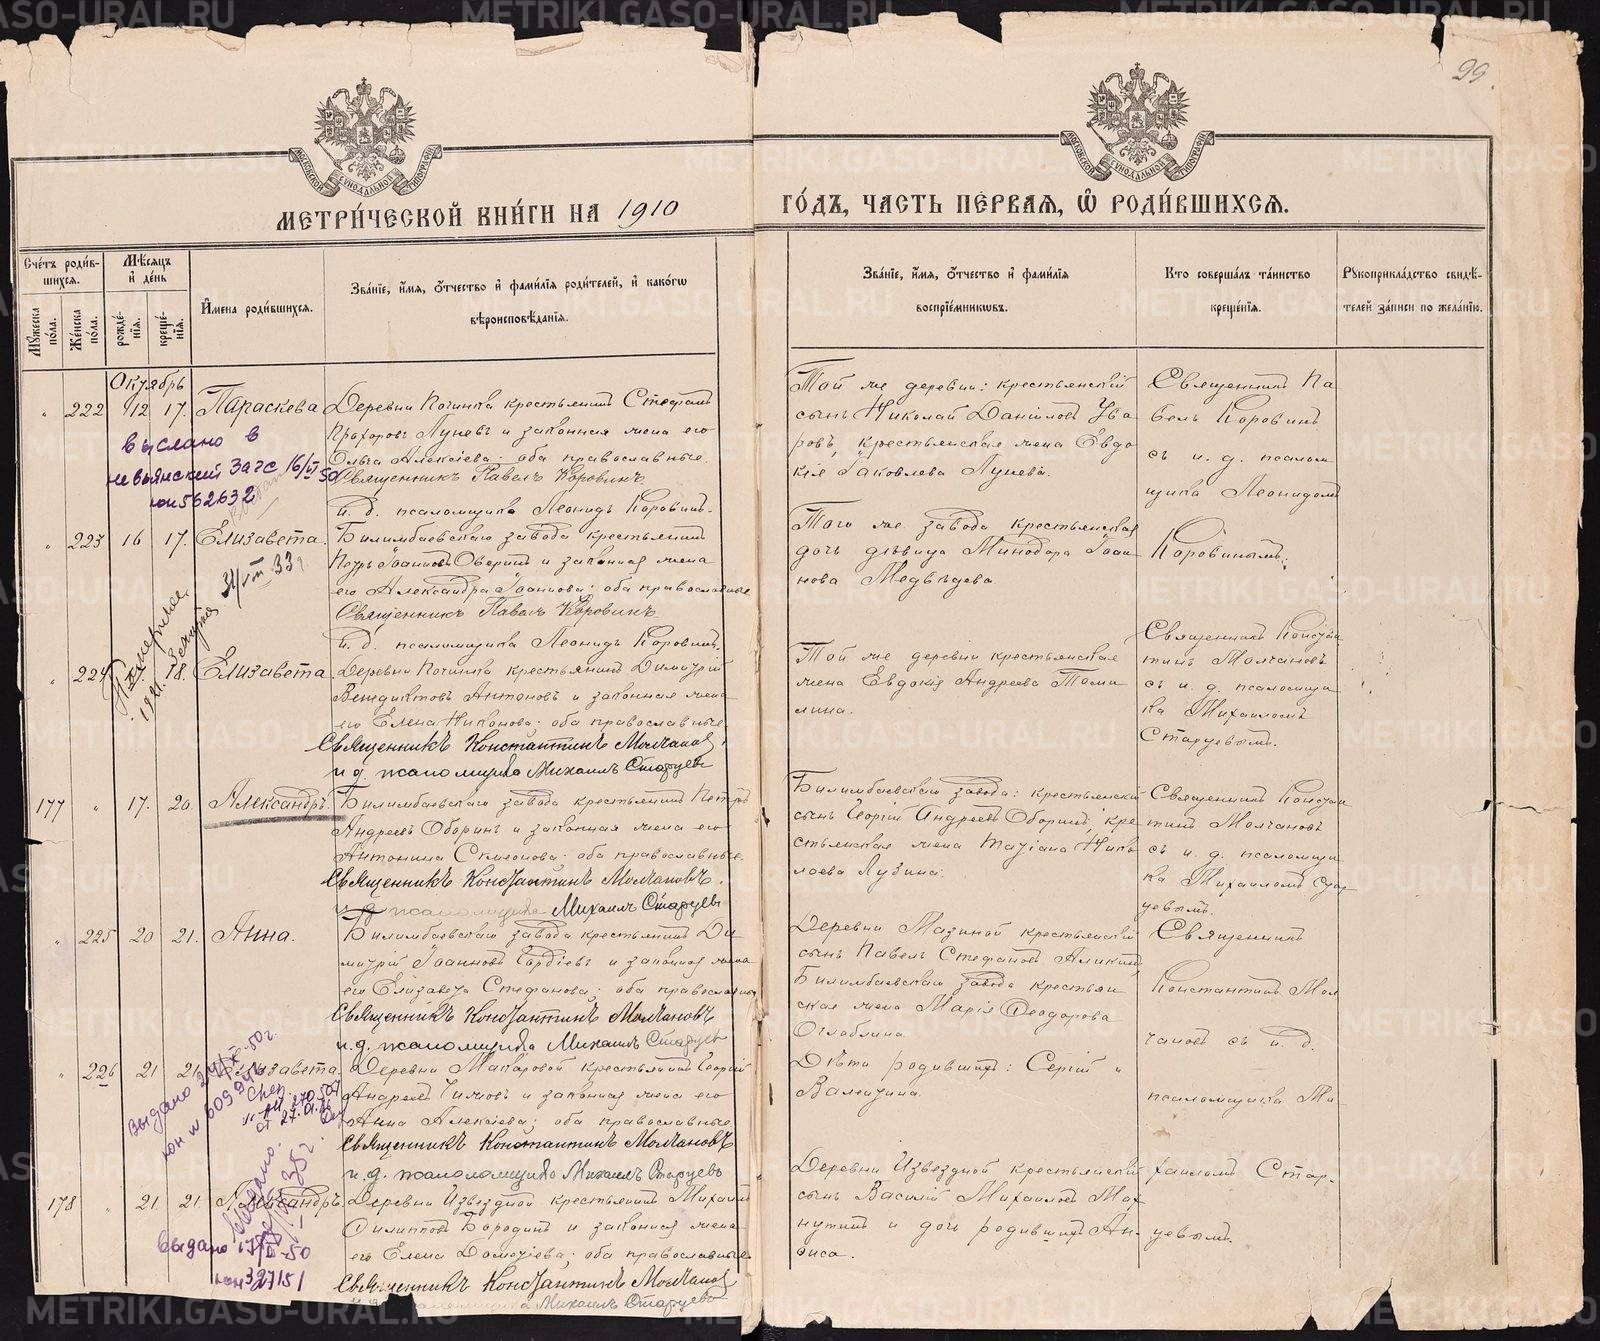 99
МОСКОВСКОЙ СѴНОДАЛЬНОЙ ТИПОГРАФІИ
МОСКОВСКОЙ СѴНОДАЛЬНОЙ ТИПОГРАФІИ
МЕТРИ́ЧЕСКОЙ КНИ́ГИ НА 1910
ГО́ДЪ, ЧАСТЬ ПЕ́РВАЯ, Ѡ РОДИ́ВШИХСЯ.
Сче́тъ роди́вшихся.
Мꙋ́жеска по́ла.
Же́нска по́ла.
Мѣ́сяцъ и де́нь
рожде́нія.
креще́нія.
И́мена роди́вшихся.
Зва́ніе, и́мя, о́тчество и фами́лія роди́телей, и како́гѡ
вѣроисповѣ́данія.
Зва́ніе, и́мя, о́тчество и фами́лія
воспріе́мникѡвъ.
Кто соверша́лъ та́инство
креще́нія.
Рꙋкоприкла́дство свидѣ́-
телей за́писи по жела́нію.
Октябрь
222 12 17. Параскева
Деревни Починка крестьянинъ Стефанъ
Прохоровъ Луневъ и законная жена его
Ольга Алексіева; оба православные.
Священникъ Павелъ Коровинъ
И. д. псаломщика Леонидъ Коровинъ.
Той же деревни: крестьянскій
сынъ Николай Даніиловъ Ува
ровъ, крестьянская жена Евдо
кія Іаковлева Лунева.
Священникъ Па
велъ Коровинъ
съ и. д. псалом
щика Леонидомъ
Коровинымъ.
выслано в
невьянский Загс 16/VI 50
юи 562632
223 16 17. Елизавета.
Билимбаевскаго завода крестьянинъ
Петръ Іоанновъ Оберинъ и законная жена
его Александра Іоаннова; оба православные
Священникъ Павелъ Коровинъ
И. д. псаломщика Леонидъ Коровинъ.
Того же завода крестьянская
дочь дѣвица Минодора Іоан
нова Медвѣдева.
224 18. Елизавета.
Деревни Починка крестьянинъ Димитрій
Венедиктовъ Антоновъ и законная жена
его Елена Никонова; оба православные
Священникъ Константинъ Молчановъ
и д. псаломщика Михаилъ Старцевъ
Той же деревни крестьянская
жена Евдокія Андреева Томи
лина.
Священникъ Констан
тинъ Молчановъ
съ и. д. псаломщи
ка Михаиломъ
Старцевымъ.
177 17. 20. Александръ
Билимбаевскаго завода крестьянинъ Петръ
Андреевъ Оборинъ и законная жена его
Антонина Симонова; оба православные.
Священникъ Константинъ Молчановъ.
и д псаломщика Михаилъ Старцевъ
Билимбаевскаго завода: крестьянскій
сынъ Георгій Андреевъ Оборинъ, кре
стьянская жена Татіана Нико
лаева Лузина.
Священникъ Констан
тинъ Молчановъ
съ и. д. псаломщи
ка Михаиломъ Стар
цевымъ.
225 20 21. Анна.
Билимбаевскаго завода крестьянинъ Ди
митрій Іоанновъ Гордіевъ и законная жена
его Елизавета Стефанова; оба православные
Священникъ Константинъ Молчановъ
и.д. псаломщика Михаилъ Старцевъ
Деревни Мазиной крестьянскій
сынъ Павелъ Стефановъ Аликинъ,
Билимбаевскаго завода крестьян
ская жена Марія Ѳеодорова
Оглоблина.
Священникъ
Константинъ Мол
чановъ съ и. д.
псаломщика Ми
хаиломъ Стар-
цевымъ.
226 21 21. Елизавета.
Деревни Макаровой крестьянинъ Георгій
Андреевъ и законная жена его
Анна Алексіева; оба православные
Священникъ Константинъ Молчановъ
и. д. псаломщика Михаилъ Старцевъ
Дѣти родившихъ: Сергій и
Валентина.
178 21. 21. Александръ
Деревни Извездной крестьянинъ Михаилъ
Филипповъ Бородинъ и законная жена
его Елена Дометіева; оба православные
Священникъ Константинъ Молчановъ
Михаилъ Старцевъ
Деревни Извездной крестьянскій
сынъ Василій Михаиловъ Мах
нуткинъ и дочь родившихъ Ан-
фиса.
выдано
юи 327151